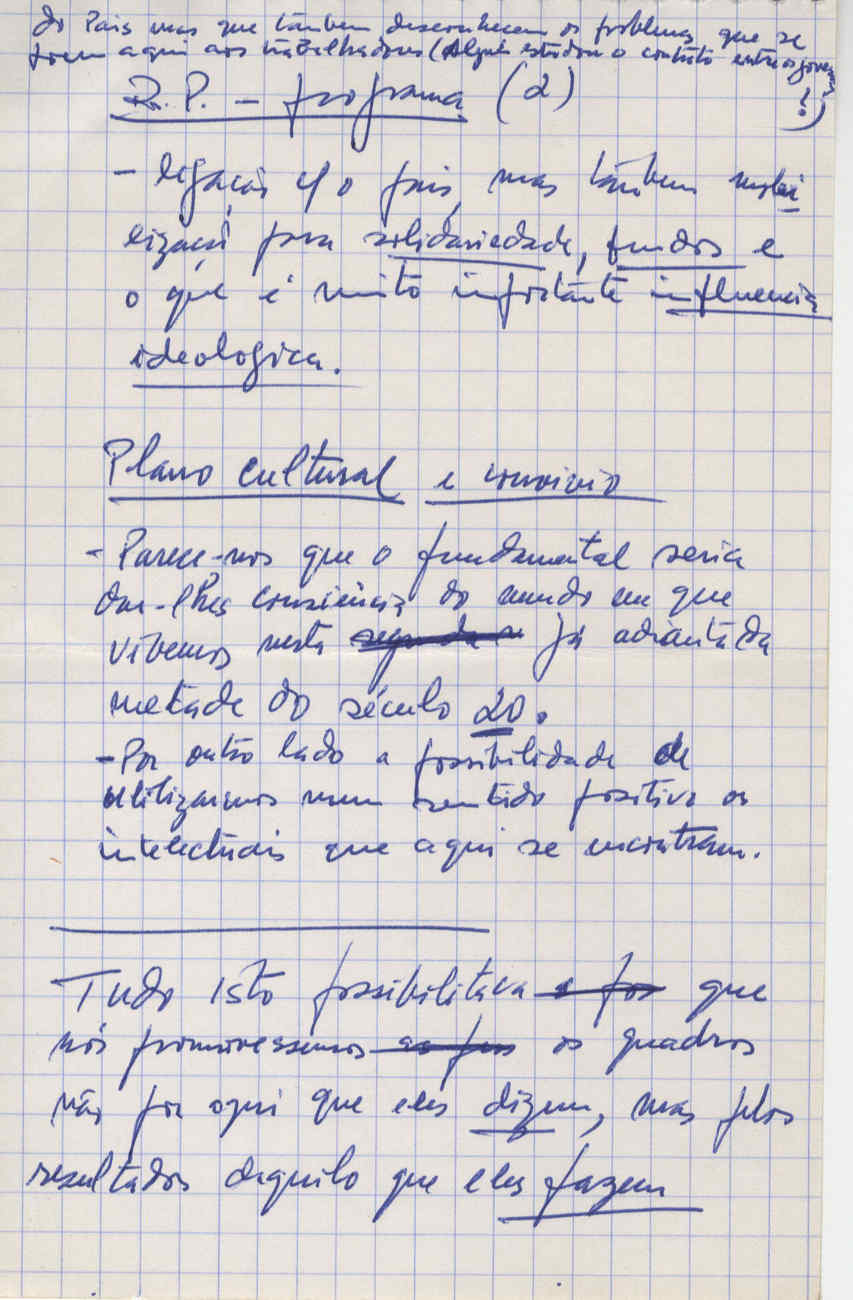 do Pais mas que tambem desconhecem os problemas que se
poem aqui aos trabalhadores (Alguem estudou o contrato entre os governos
?)
R.P. - programa (2)
- ligação c/ o pais, mas tambem mobi
lização para solidariedade, fundos e
o que é muito importante influencia
ideologica.
Plano cultural e convivio
- Parece-nos que o fundamental seria
dar-lhes consciência do mundo em que
vivemos nesta segunda já adiantada
metade do século 20.
- Por outro lado a possibilidade de
utilizarmos num sentido positivo os
intelectuais que aqui se encontram.
Tudo isto possibilitava que
nós promovessemos os quadros
não por aqui que eles dizem, mas pelos
resultados daquilo que eles fazem